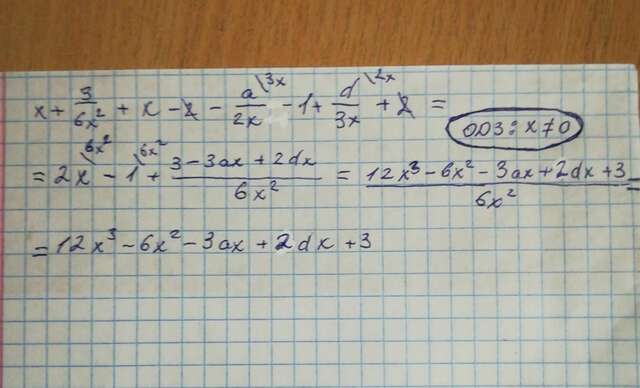 x + 3/6x² + x - 2 - a/2x \3x - 1 + d/3x \2x + 2 =
ОДЗ: x≠0
= 2x \6x² - 1 \6x² + (3 - 3ax + 2dx)/6x² = (12x³ - 6x² - 3ax + 2dx + 3)/6x² =
= 12x³ - 6x² - 3ax + 2dx + 3